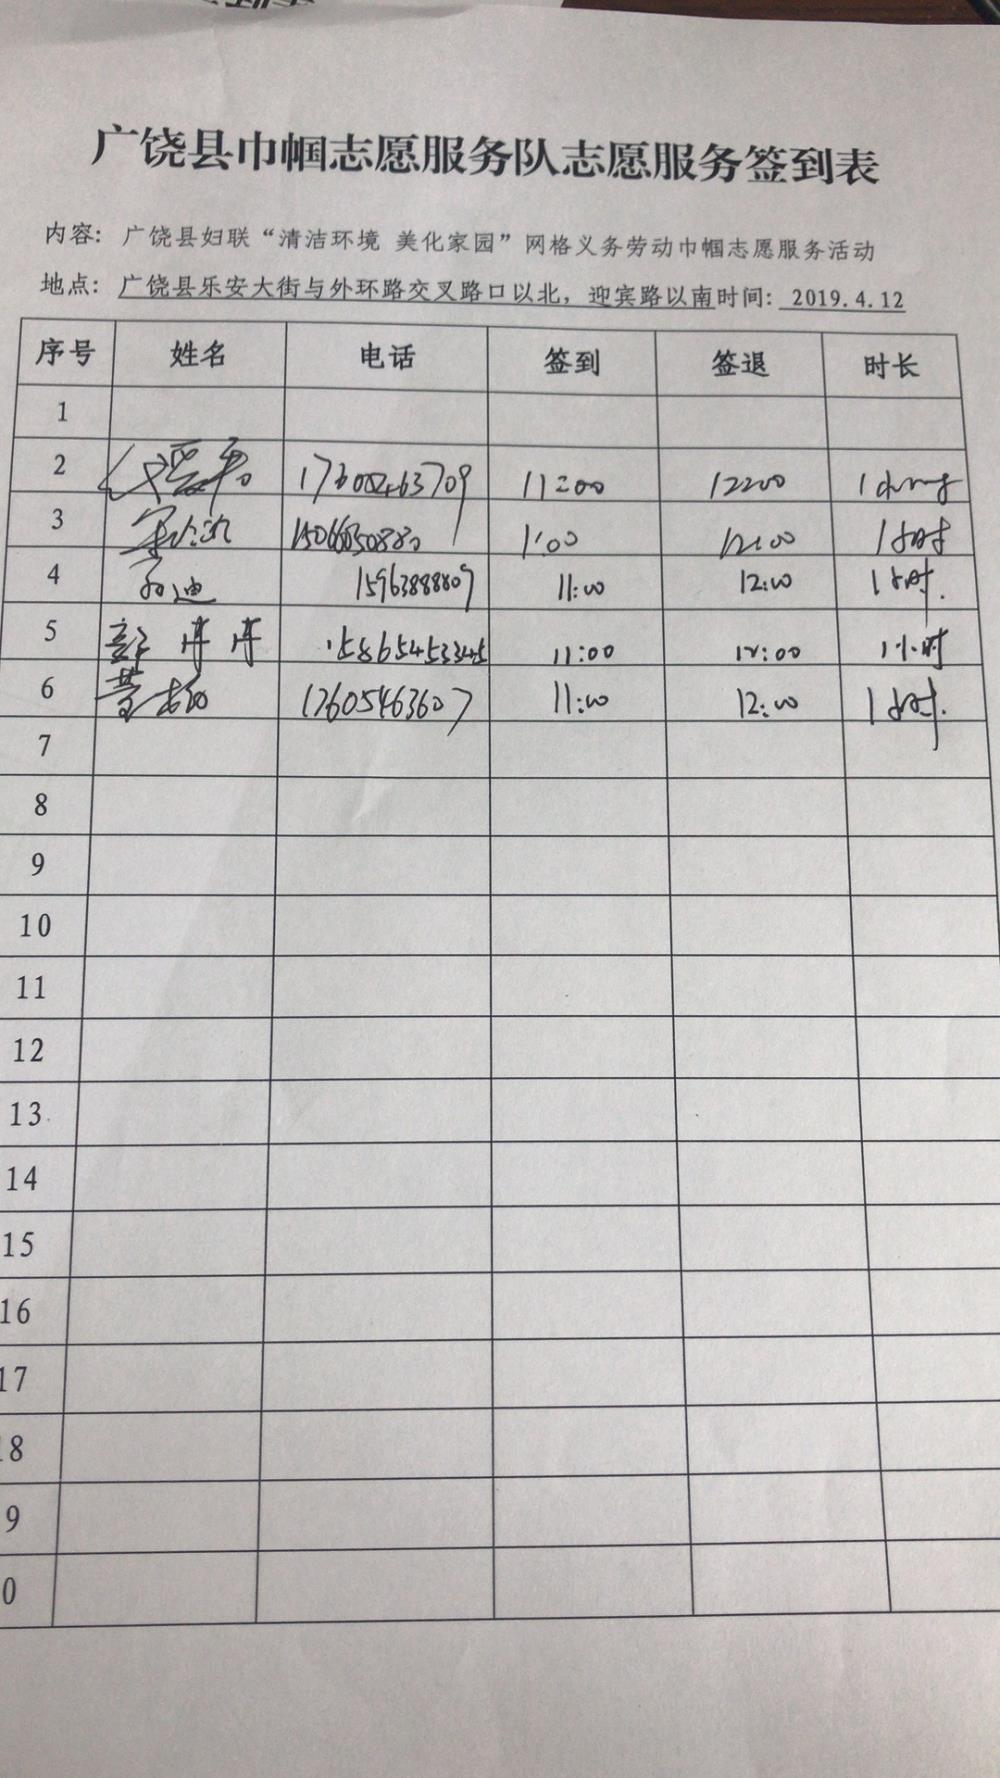 广饶县巾帼志愿服务队志愿服务签到表
内容: 广饶县妇联“清洁环境 美化家园”网格义务劳动巾帼志愿服务活动
地点: 广饶县乐安大街与外环路交叉路口以北，迎宾路以南时间: 2019.4.12
序号 姓名 电话 签到 签退 时长
1
2 11:00 12:00 1小时
3 1:00 12:00 1小时
4 15963888809 11:00 12:00 1小时.
5 彭冉冉 15865453345 11:00 12:00 1小时
6 17605463607 11:00 12:00 1小时.
7
8
9
10
11
12
13
14
15
16
17
18
9
0